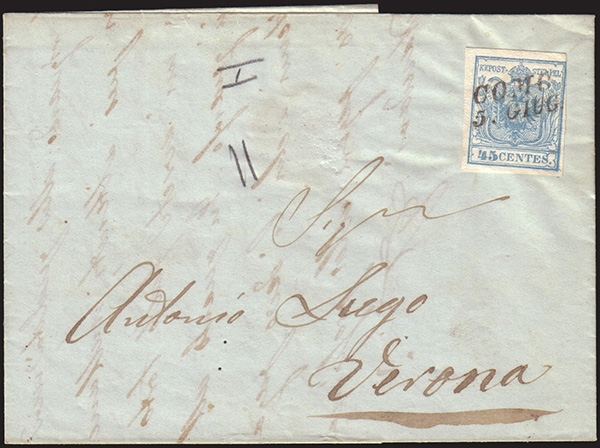 KKPOST-STEMPEL
COMO
5. GIUG
45 CENTES.
Sigr
Antonio Lugo
Verona